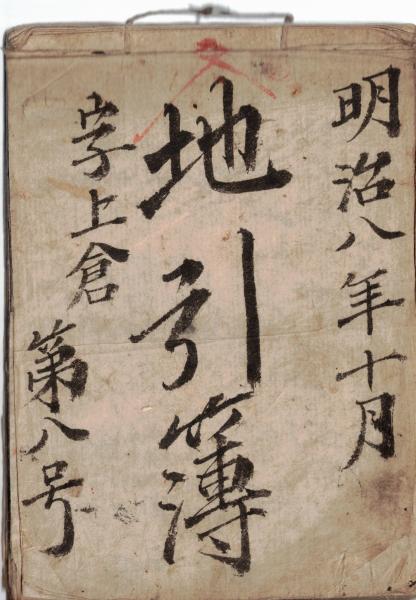 明治八年十月
地引簿
字上倉
第八号